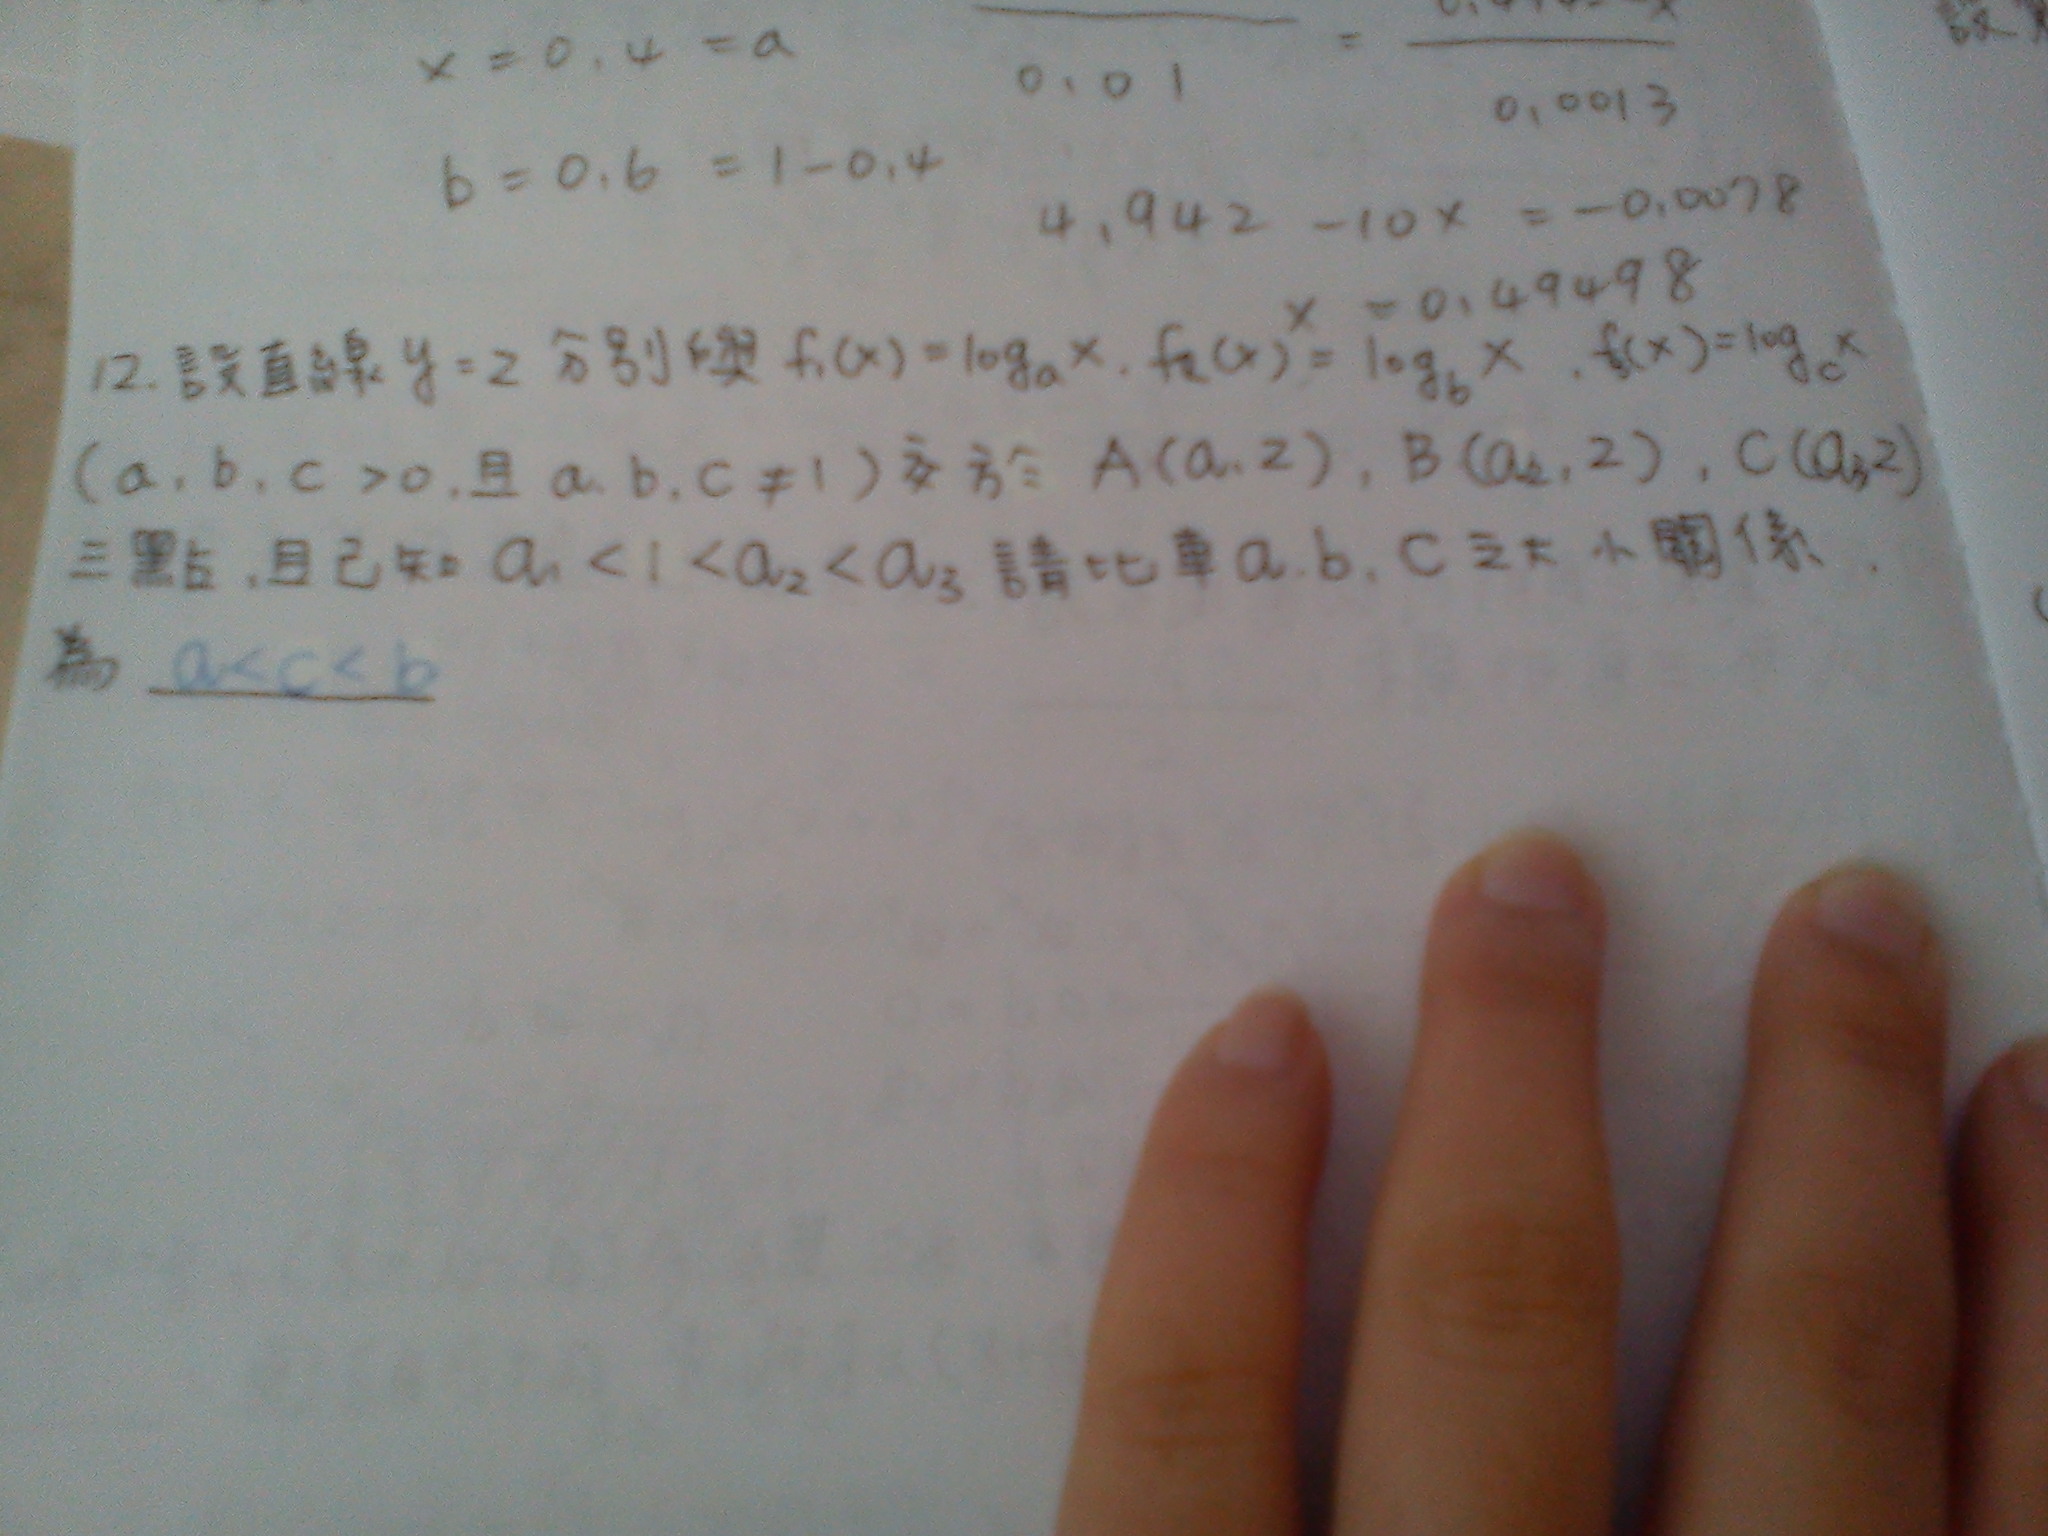 x = 0.4 = a
0.01
=
0.0013
b = 0.6 = 1-0.4
4.942 -10x = -0.0078
x = 0.49498
12. 設直線 y=2 分別與 f₁(x)=logₐx. f₂(x)= log_b x . f₃(x)=log_c x
(a. b. c >0.且 a. b. c ≠1)交於 A(a₁.2), B(a₂,2), C(a₃,2)
三點.且已知 a₁<1<a₂<a₃ 請比較 a.b.c 之大小關係.
為 a<c<b
設